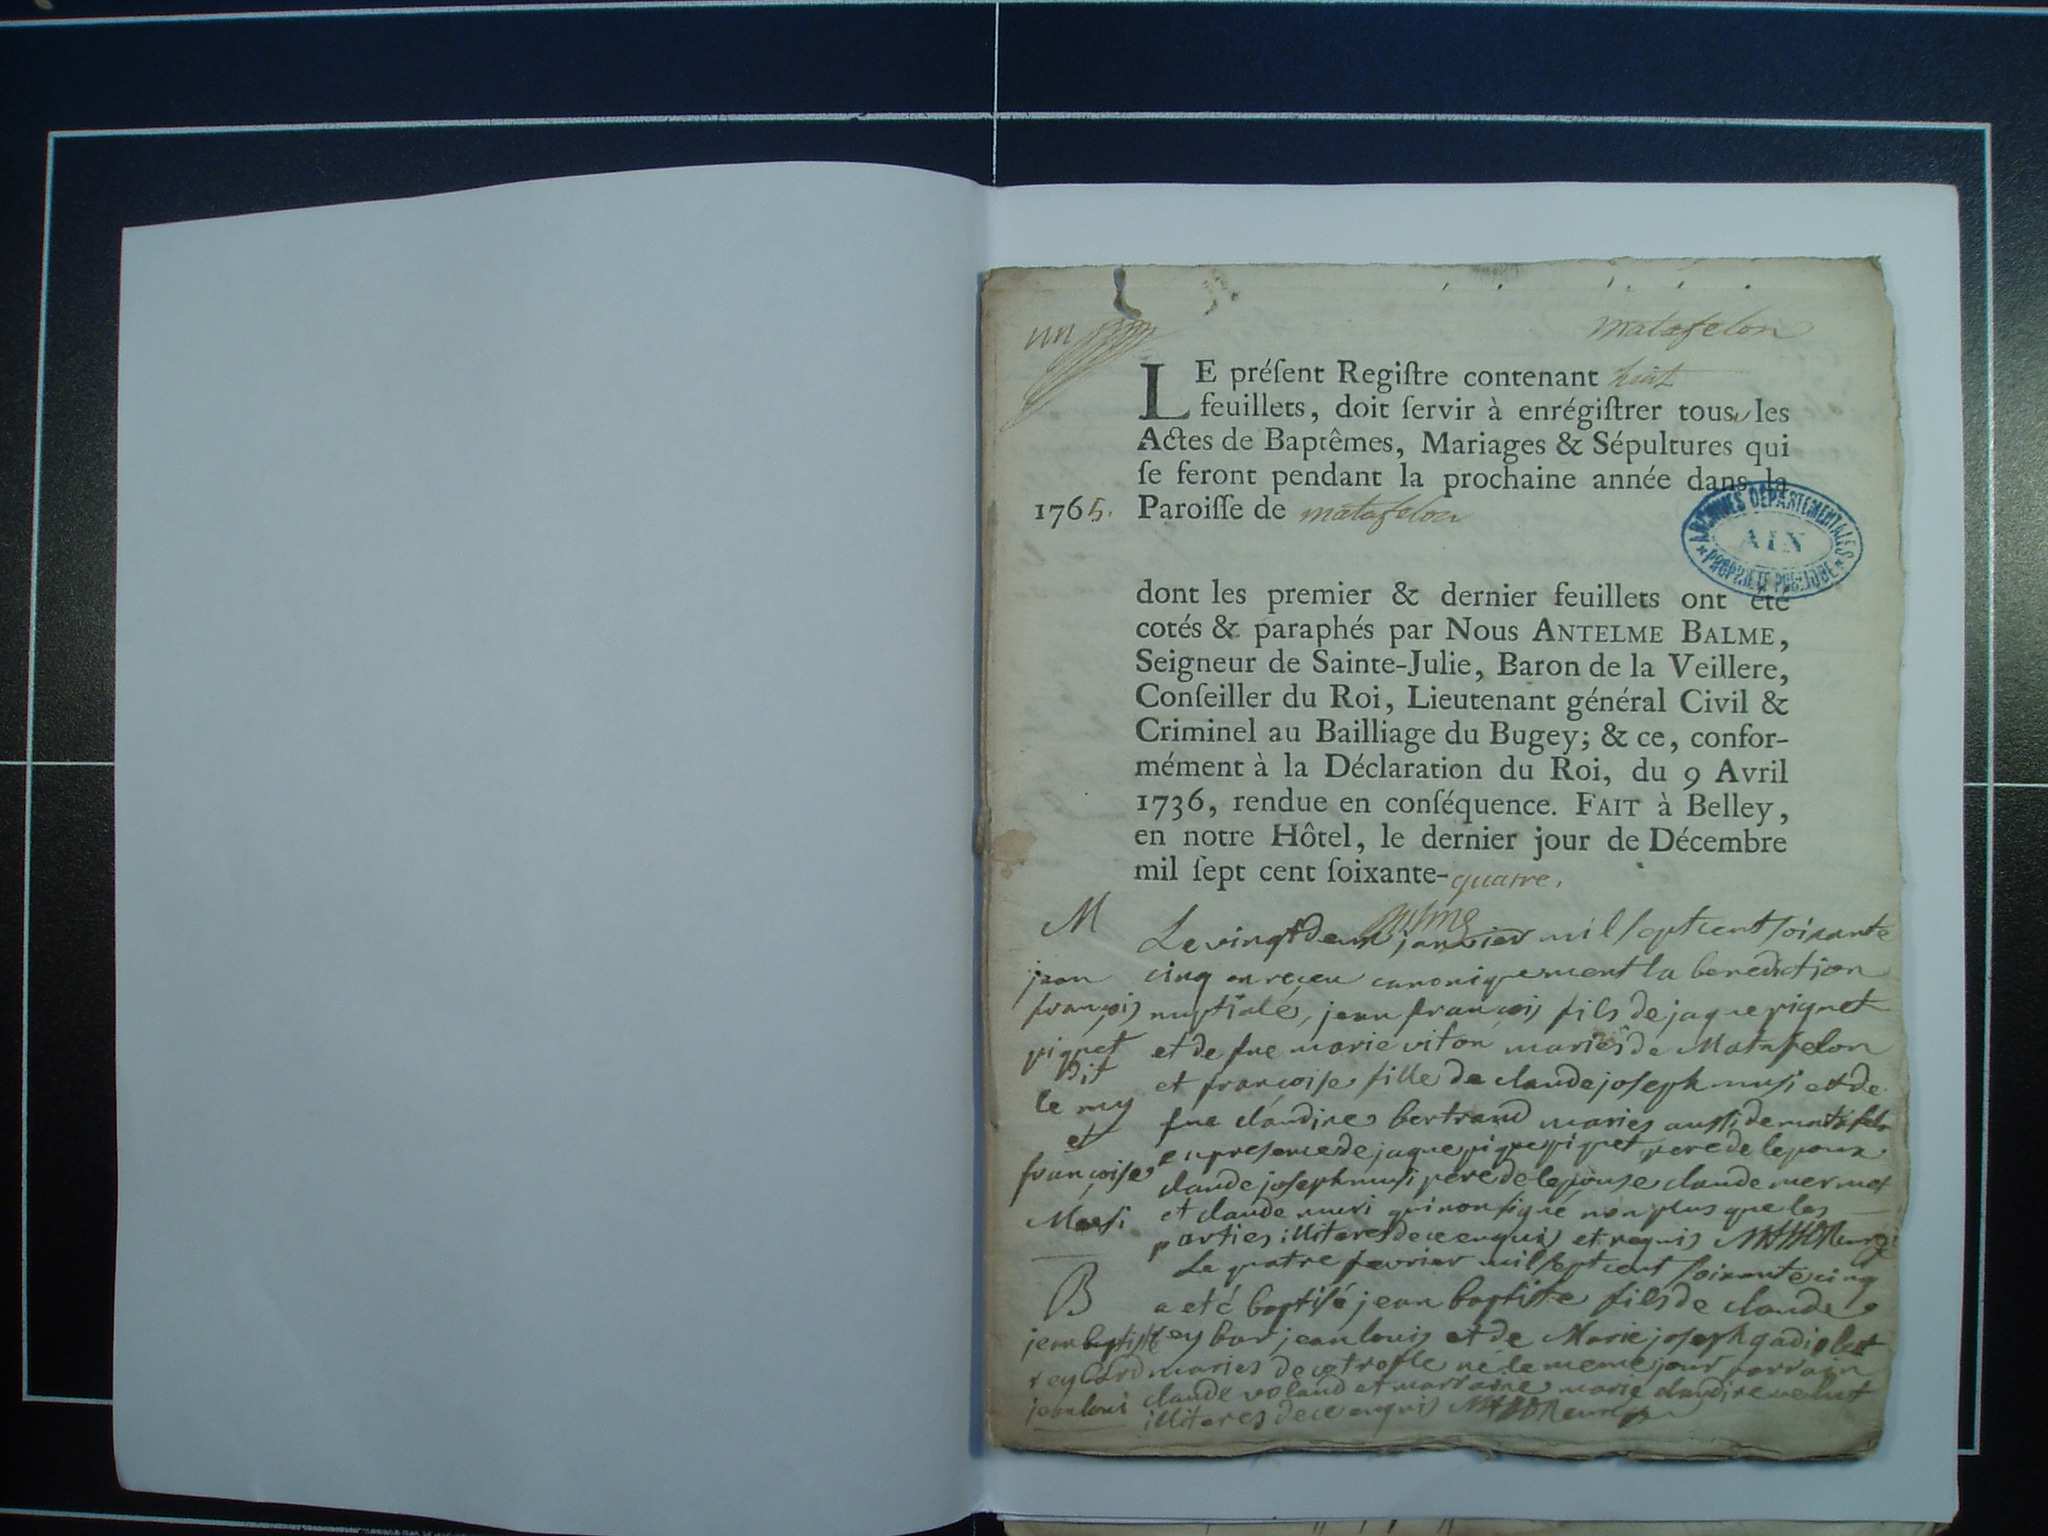 un
matafelon
LE préſent Regiſtre contenant huit
feuillets, doit ſervir à enrégiſtrer tous les
Actes de Baptêmes, Mariages & Sépultures qui
ſe feront pendant la prochaine année dans la
1765. Paroiſſe de matafelon
ARCHIVES DEPARTEMENTALES
AIN
PROPRIETE PUBLIQUE
dont les premier & dernier feuillets ont été
cotés & paraphés par Nous ANTELME BALME,
Seigneur de Sainte-Julie, Baron de la Veillere,
Conſeiller du Roi, Lieutenant général Civil &
Criminel au Bailliage du Bugey; & ce, confor-
mément à la Déclaration du Roi, du 9 Avril
1736, rendue en conſéquence. FAIT à Belley,
en notre Hôtel, le dernier jour de Décembre
mil ſept cent ſoixante-quatre.
M
jean
françois
piquet
dit
le my
et
françoise
Musi
Le vingt deux janvier mil sept cent soixante
cinq on reçeu canoniquement la benediction
nuptiale, jean françois fils de jaque piquet
et de fue marie viton mariés de Matafelon
et françoise fille de claude joseph musi et de
fue claudine bertrand mariés aussi de matafelon
en presence de jaque piquet pere de lepoux
claude joseph musi pere de lepouse claude mermet
et claude musi qui non signé non plus que les
parties illiteres de ce enquis et requis
B
jean baptiste
rey
jean loui
Le quatre fevrier mil sept cent soixante cinq
a eté baptisé jean baptiste fils de claude
rey jean louis et de Marie joseph
mariés de né le meme jour parrain
claude voland et marraine marie claudine
illiteres de ce enquis